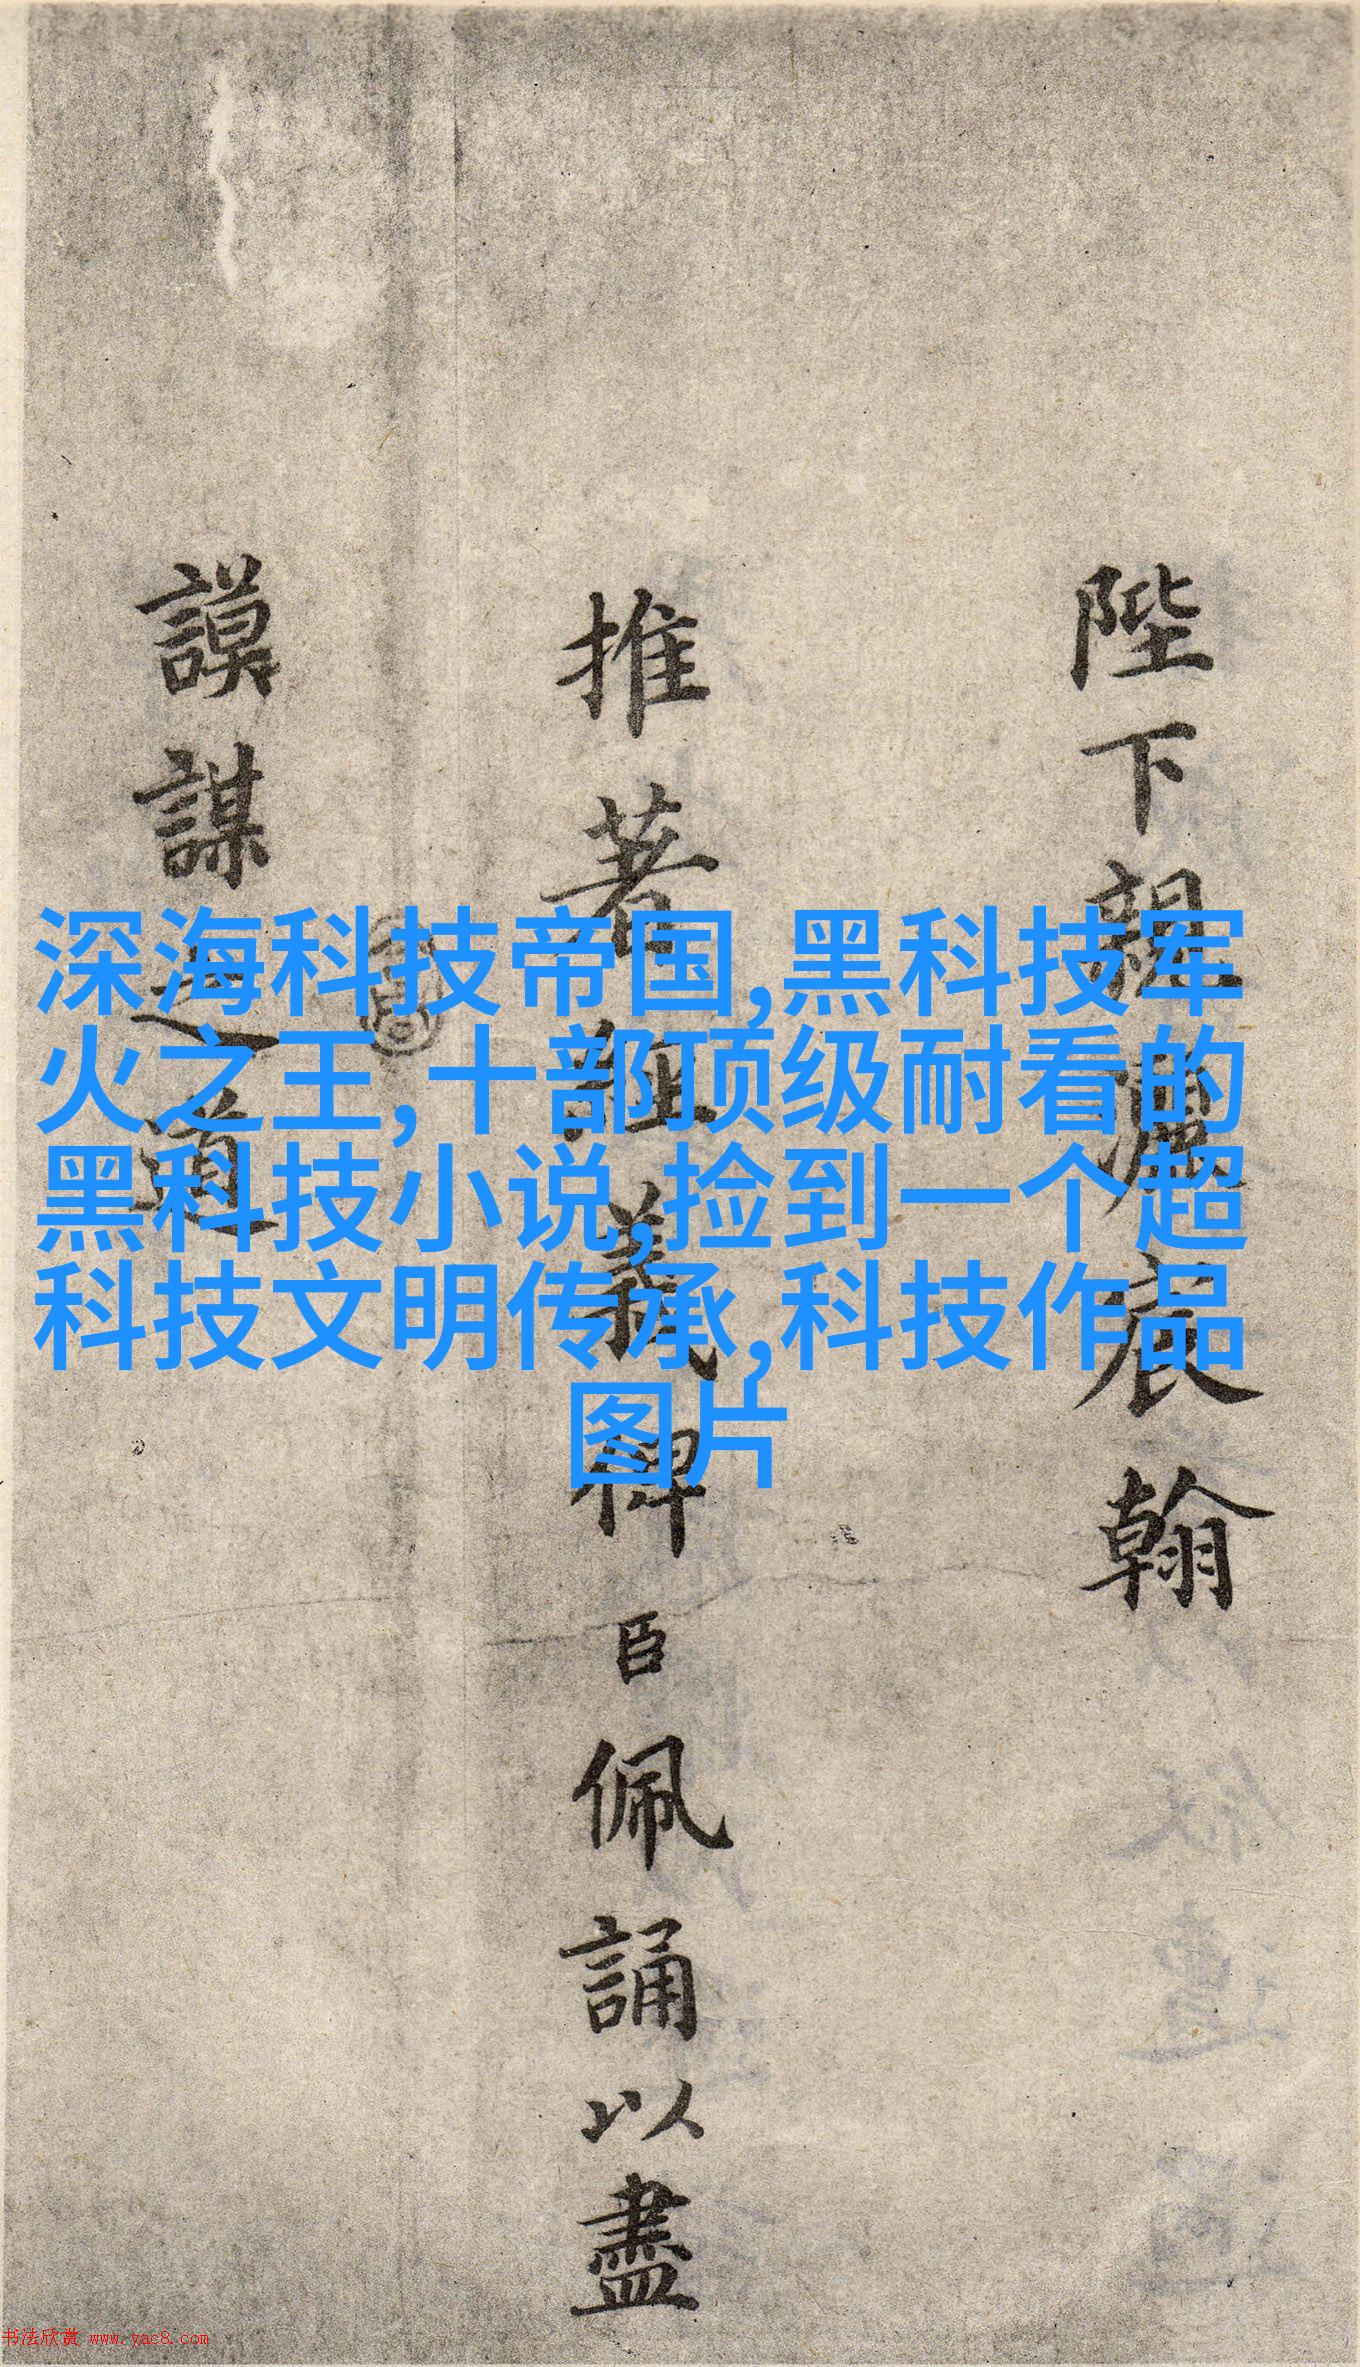 陛下親灑宸翰
推著經義俾臣佩誦以盡
謨謀之道
深海科技帝国,黑科技军
火之王,十部顶级耐看的
黑科技小说,捡到一个超
科技文明传承,科技作品
图片
书法欣赏 www.yac8.com